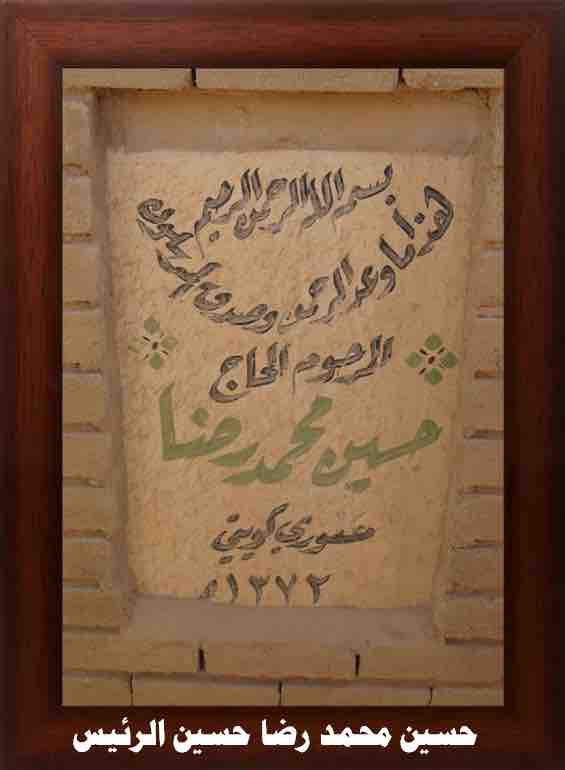 بسم الله الرحمن الرحيم
هذا ما وعد الرحمن وصدق المرسلون
المرحوم الحاج
حسين محمد رضا
كويتي
١٣٧٢
حسين محمد رضا حسين الرئيس